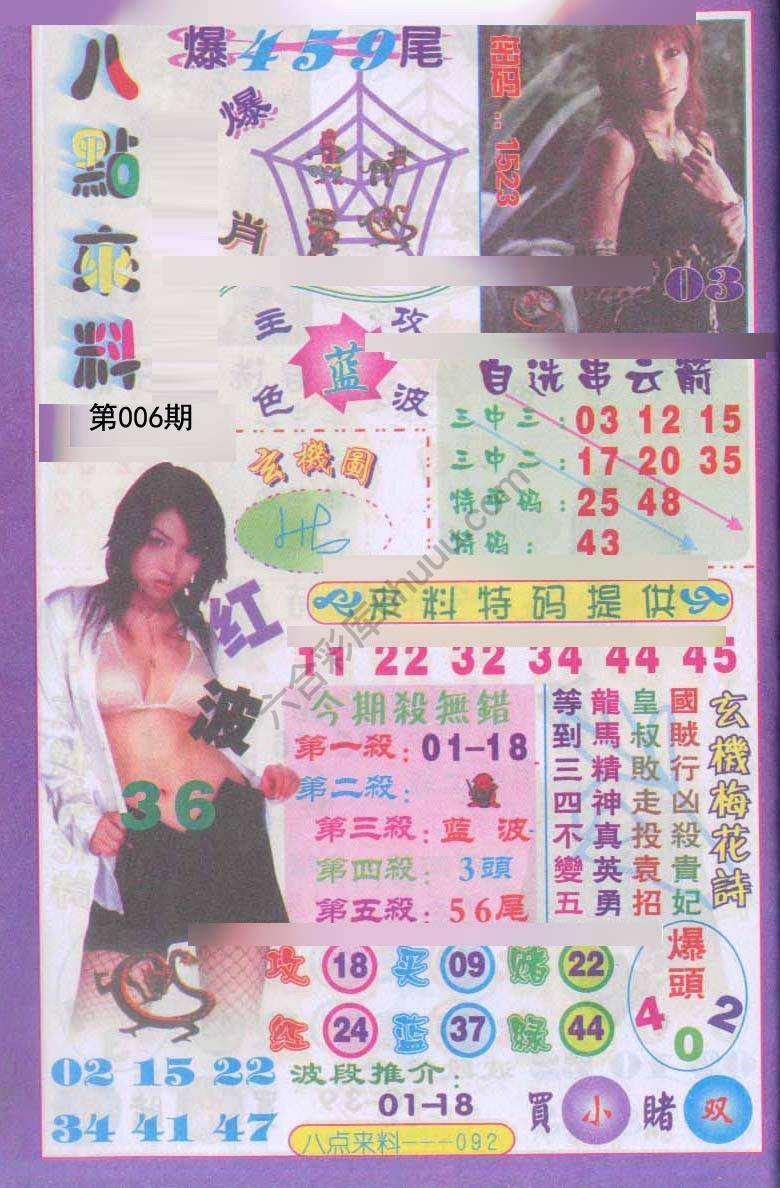 八點來料
爆459尾
爆肖
密码:1523
03
主攻
蓝
色波
第006期
自选串云箭
三中三:03 12 15
三中二:17 20 35
特平码:25 48
特码:43
玄機圖
来料特码提供
11 22 32 34 44 45
红波
36
今期殺無錯
第一殺:01-18
第二殺:
第三殺:蓝 波
第四殺:3頭
第五殺:56尾
玄機梅花詩
國賊行凶殺貴妃
皇叔敗走投袁招
龍馬精神真英勇
等到三四不變五
攻 18 买 09 赌 22
红 24 蓝 37 绿 44
爆頭
4 0 2
02 15 22
34 41 47
波段推介:
01-18
買 小 賭 双
八点来料---092